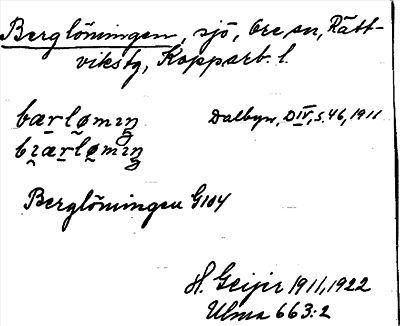 Berglöningen, sjö, Ore sn, Rätt-
viks tg, Kopparb. l.
bærlø̱miŋ Dalbyn, DIV, s. 46, 1911
bi̯æ̱rlø̱miŋ
Berglöningen G104
H. Geijer 1911, 1922
Ulma 663:2